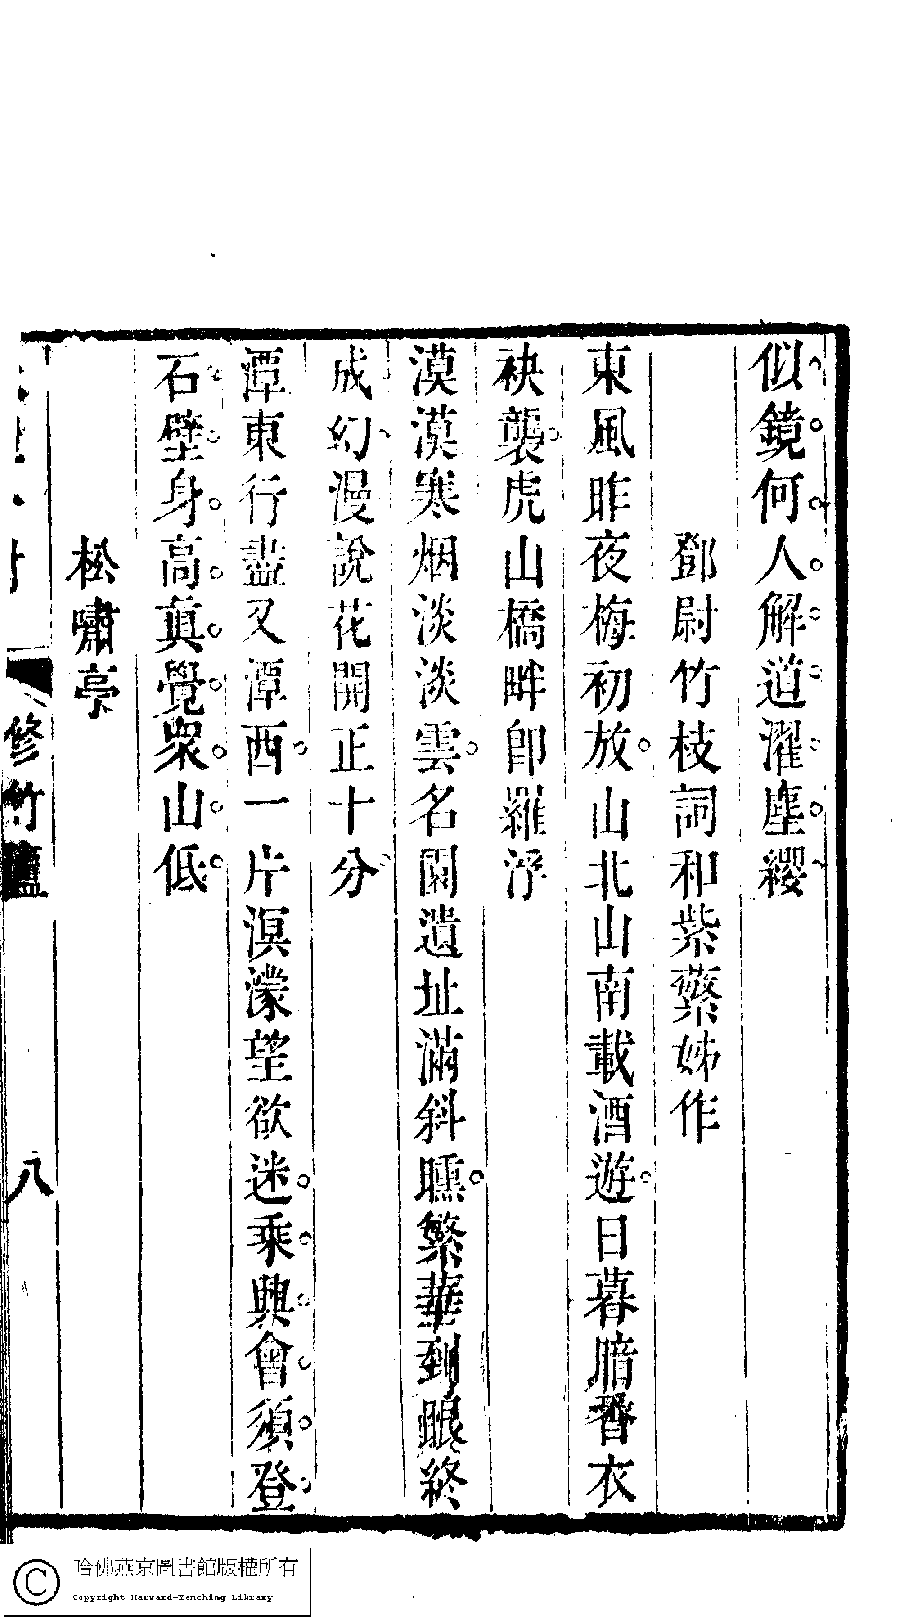 似鏡何人解道濯塵纓
鄧尉竹枝詞和紫蘩姊作
東風昨夜梅初放山北山南載酒遊日暮暗香衣
袂襲虎山橋畔卽羅浮
漠漠寒烟淡淡雲名園遺址滿斜曛繁華到眼終
成幻漫說花開正十分
潭東行盡又潭西一片溟濛望欲迷乘興會須登
石壁身高眞覺衆山低
松嘯亭
修竹廬
八
哈佛燕京圖書館版權所有
Copyright Harvard-Yenching Library